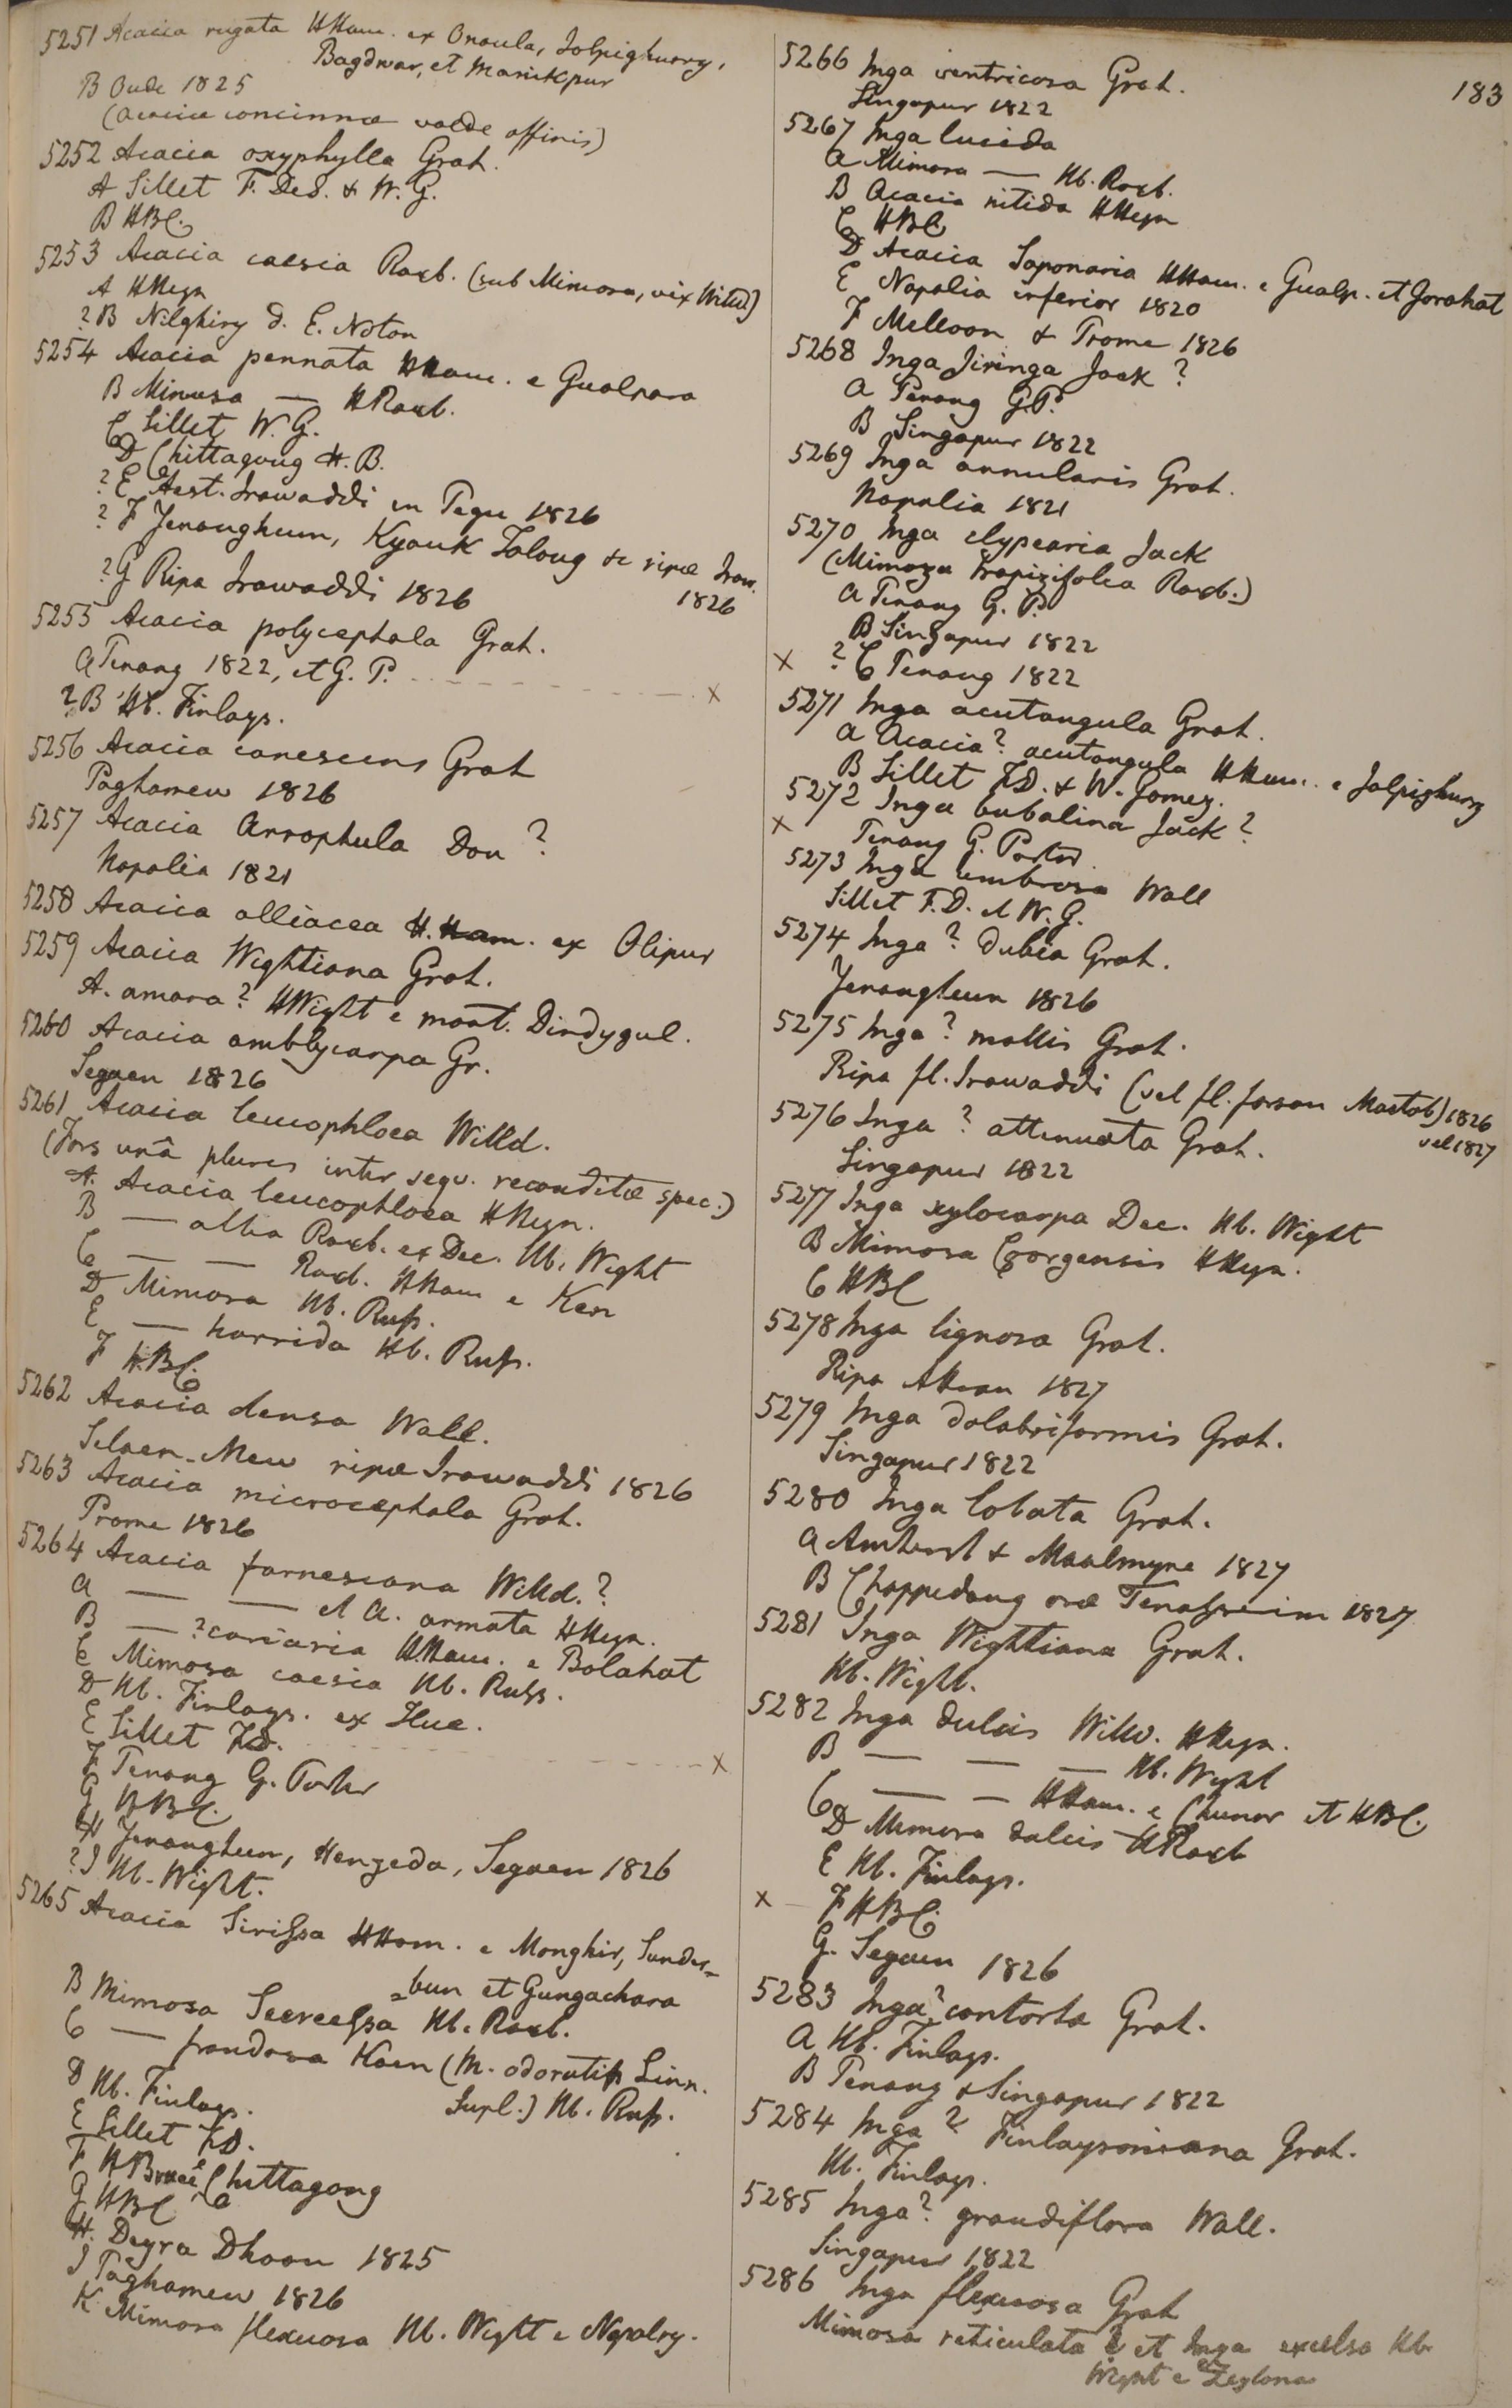 5251 Acacia rugata HHam. ex Onaula, Jolpighurry,
Bagdwar, et Manickpur
B Oude 1825
(Acaciæ concinnæ valde affinis)
5252 Acacia oxyphylla Grah.
A Sillet F. DeS. & W. G.
B HBC.
5253 Acacia caesia Roxb. (sub Mimosa, vix Willd)
A HHeyn
?B Nilghiry d. E. Noton
5254 Acacia pennata HHam. e Gualpara
B Mimosa — HRoxb.
C Sillet W. G.
D Chittagong H. B.
?E Aest. Irawaddi in Pegu 1826
?F Jenanghuum, Kyouk Taloug &c ripæ Iraw.
1826
?G Ripa Irawaddi 1826
5255 Acacia polycephala Grah.
A Penang 1822, et G. P. x
?B Hb. Finlays.
5256 Acacia canescens Grah
Paghamew 1826
5257 Acacia Arrophula Don ?
Napalia 1821
5258 Acacia alliacea H.Ham. ex Olipur
5259 Acacia Wightiana Grah.
A. amara? HWight e mont. Dindygul.
5260 Acacia amblycarpa Gr.
Segaen 1826
5261 Acacia leucophloea Willd.
(Fors unâ plures inter sequ. reconditæ spec.)
A. Acacia leucophloea HHeyn.
B — alba Roxb. ex Dec. Hb. Wight
C — — Roxb. HHam e Ken
D Mimosa Hb. Russ.
E — horrida Hb. Russ.
F H.BC.
5262 Acacia densa Wall.
Selaen-Mew ripæ Irawaddi 1826
5263 Acacia microcephala Grah.
Prome 1826
5264 Acacia farnesiana Willd.?
A — — et A. armata HHeyn.
B — ?coriaria HHam. e Bolahat
C Mimosa caesia Hb. Russ.
D Hb. Finlays. ex Hue.
E Sillet FD.
F Penang G. Porter x
G HBC.
H Jenangheun, Henzeda, Segaen 1826
?I Hb. Wight.
5265 Acacia Sirissa HHam. e Monghir, Sunder-
=bun et Gungachora
B Mimosa Seereessa Hb. Roxb.
C — frondosa Koen (M. odoratiss Linn.
Supl.) Hb. Russ.
D Hb. Finlays.
E Sillet FD.
F HBruce, Chittagong
G HBC
H. Deyra Dhoon 1825
I Paghamew 1826
K Mimosa flexuosa Hb. Wight e Negalry.
183
5266 Inga ventricosa Grah.
Singapur 1822
5267 Inga lucida
A Mimosa — Hb. Roxb.
B Acacia nitida HHeyn
C HBC
D Acacia Saponaria HHam. e Gualp. et Jorahat
E Napalia inferior 1820
F Melloon & Prome 1826
5268 Inga Jiringa Jack ?
A Penang G.P.
B Singapur 1822
5269 Inga annularis Grah.
Napalia 1821
5270 Inga clypearia Jack
(Mimosa trapizifolia Roxb.)
A Penang G. P.
B Singapur 1822
x ?C Penang 1822
5271 Inga acutangula Grah.
A Acacia? acutangula HHam. e Jolpighury
B Sillet F.D. & W. Gomez.
5272 Inga bubalina Jack ?
x Penang G. Porter
5273 Inga umbrosa Wall
Sillet F.D. et W. G.
5274 Inga ? dubia Grah.
Jenangheun 1826
5275 Inga ? mollis Grah.
Ripa fl. Irawaddi (vel fl. forsan Martab) 1826
vel 1827
5276 Inga ? attenuata Grah.
Singapur 1822
5277 Inga xylocarpa Dec. Hb. Wight
B Mimosa Coorgensis HHeyn.
C HBC
5278 Inga lignosa Grah.
Ripa Attran 1827
5279 Inga dolabriformis Grah.
Singapur 1822
5280 Inga lobata Grah.
A Amherst & Moalmyne 1827
B Chappedong oræ Tenasserim 1827
5281 Inga Wightiana Grah.
Hb. Wight.
5282 Inga dulcis Willd. HHeyn.
B — — — Hb. Wight
C — — HHam. e Chunar et HBC.
D Mimosa dulcis HRoxb
E Hb. Finlays.
x F HBC.
G. Segaen 1826
5283 Inga? contorta Grah.
A Hb. Finlays.
B Penang & Singapur 1822
5284 Inga ? Finlaysoniana Grah.
Hb. Finlays.
5285 Inga? grandiflora Wall.
Singapur 1822
5286 Inga flexuosa Grah
Mimosa reticulata ? et Inga excelsa Hb
Wight e Zeylona